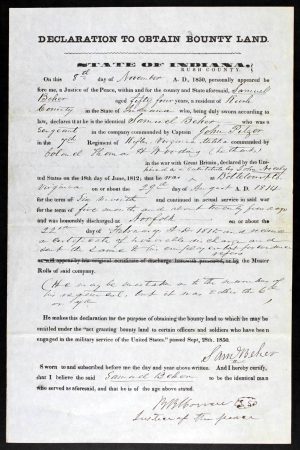 DECLARATION TO OBTAIN BOUNTY LAND.
STATE OF INDIANA,
RUSH COUNTY.
On this 8th day of November A. D., 1850, personally appeared be-
fore me, a Justice of the Peace, within and for the county and State aforesaid, Samuel
Beher aged fifty four years, a resident of Rush
County in the State of Indiana who, being duly sworn according to
law, declares that he is the identical Samuel Beher who was a
Sergeant in the company commanded by Captain John
in the Regiment of Virginia Militia commanded by
Colonel
in the war with Great Britain, declared by the Uni-
ted States on the 18th day of June, 1812; that he was a
Virginia on or about the 29th day of August A.D. 1814
for the term of Six months and continued in actual service in said war
for the term of five months and
and was honorably discharged at Norfolk on or about the
22nd day of February A.D. 1815 and
a certificate of honorable discharge and
sent the same to the
as will appear by his original certificate of discharge herewith presented, or by the Muster
Rolls of said company.
(He may be mistaken as to the number of
his regiment, but it was either the 6th
or 7th
He makes this declaration for the purpose of obtaining the bounty land to which he may be
entitled under the "act granting bounty land to certain officers and soldiers who have been
engaged in the military service of the United States," passed Sept. 28th, 1850.
Saml Beher
Sworn to and subscribed before me the day and year above written. And I hereby certify,
that I believe the said Samuel Beher to be the identical man
who served as aforesaid, and that he is of the age above stated.
Justice of the peace